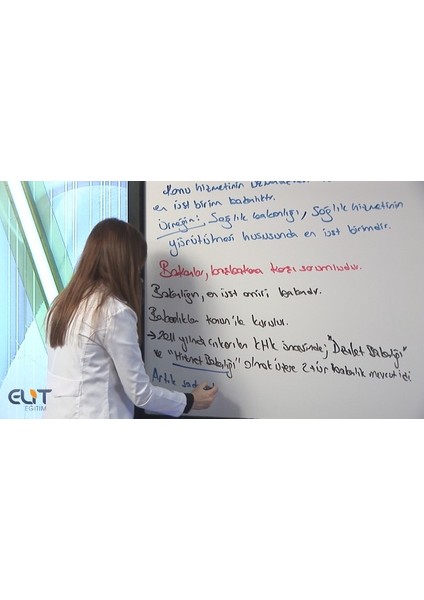 Kamu hizmetinin
en üst birim bakanlıktır.
Örneğin; Sağlık bakanlığı, Sağlık hizmetinin
yürütülmesi hususunda en üst birimdir.
Bakanlar, başbakana karşı sorumludur.
Bakanlığın, en üst amiri bakandır.
Bakanlıklar kanun'la kurulur.
→ 2011 yılında çıkarılan KHK öncesinde; "Devlet Bakanlığı"
ve "Hizmet Bakanlığı" olmak üzere 2 tür bakanlık mevcut idi.
Artık
ELIT
EĞİTİM